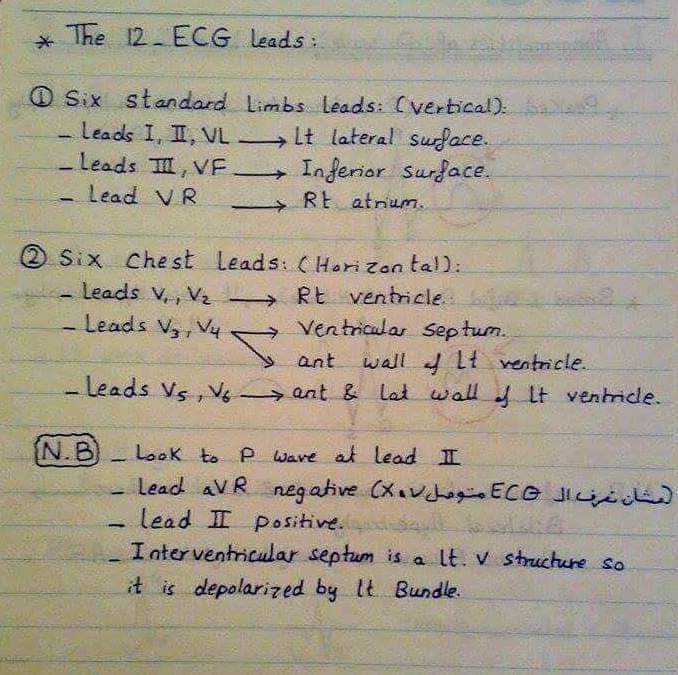 * The 12_ECG leads:
① Six standard limbs leads: (vertical):
- Leads I, II, VL → Lt lateral surface.
- Leads III, VF → Inferior surface.
- Lead VR → Rt atrium.
② Six chest leads: (Horizontal):
- Leads V₁, V₂ → Rt ventricle.
- Leads V₃, V₄ → Ventricular septum.
→ ant wall of Lt ventricle.
- Leads V₅, V₆ → ant & lat wall of Lt ventricle.
N.B - Look to P wave at lead II
- Lead aVR negative (عشان نعرف ال ECG متوصل X ولا √)
- lead II positive.
- Interventricular septum is a lt. v structure so
it is depolarized by lt Bundle.